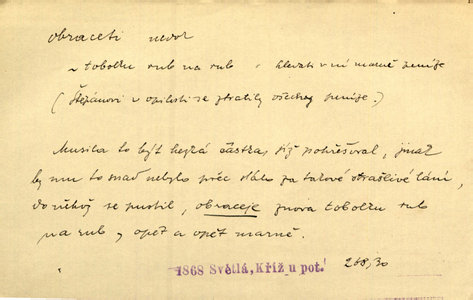 obraceti nedok
~ tobolku rub na rub = hledati v ní marně peníze
(Štěpánovi v opilosti se ztratily všechny peníze.)
Musila to být hezká částka, již pohřešoval, jinak
by mu to snad nebylo přec stálo za takové strašlivé lání,
do něhož se pustil, obraceje znova tobolku rub
na rub, opět a opět marně.
1868 Světlá, Kříž u pot.
268,30